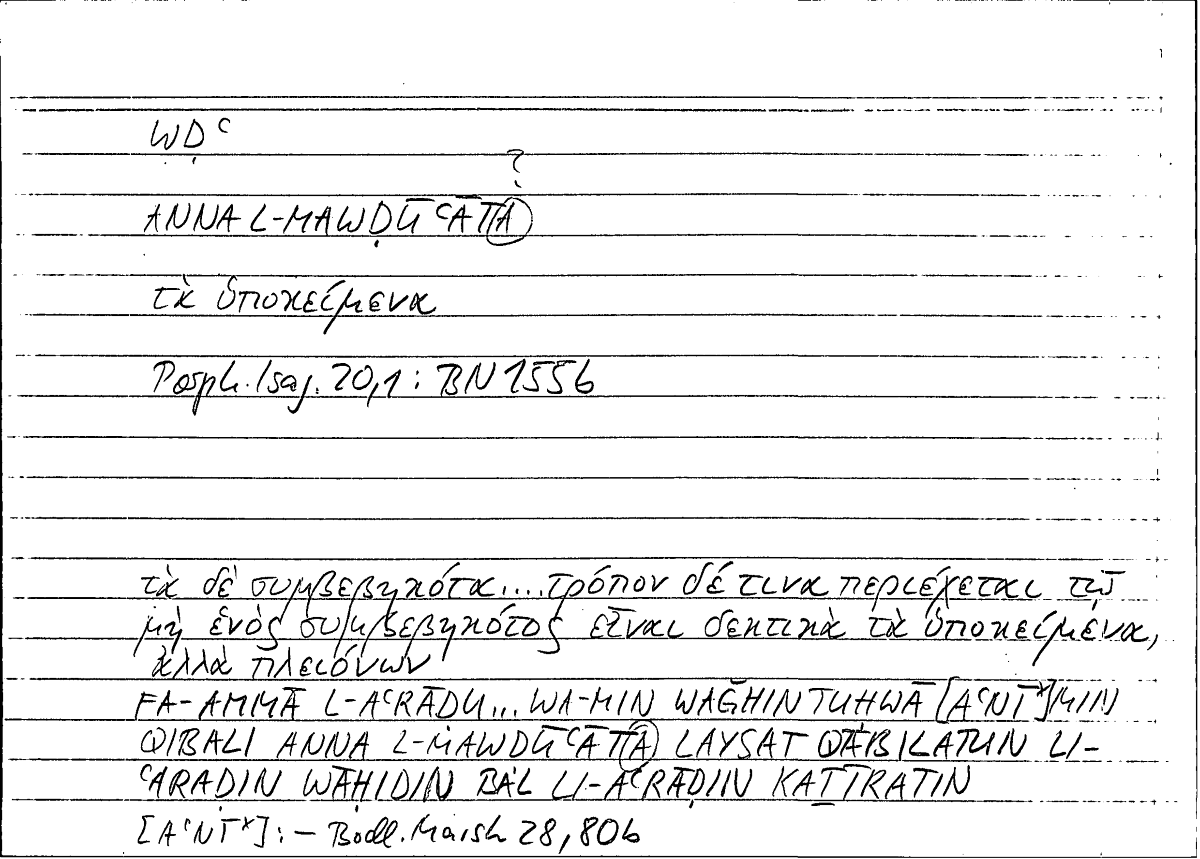 WḌʿ
?
ANNA L-MAWḌŪʿĀT̲A
τὰ ὑποκείμενα
Porph. Isag. 20,1 : BN 155b
τὰ δὲ συμβεβηκότα....τρόπον δέ τινα περιέχεται τῷ
μὴ ἑνὸς συμβεβηκότος εἶναι δεκτικὰ τὰ ὑποκείμενα,
ἀλλὰ πλειόνων
FA-AMMĀ L-AʿRĀḌU... WA-MIN WAǦHIN TUḤWĀ [AʿNĪ*] MIN
QIBALI ANNA L-MAWḌŪʿĀTA LAYSAT QĀBILATUN LI-
ʿARAḌIN WĀḤIDIN BAL LI-AʿRĀḌIN KAṮĪRATIN
[AʿNĪ*] : – Bodl. Marsh 28,80b